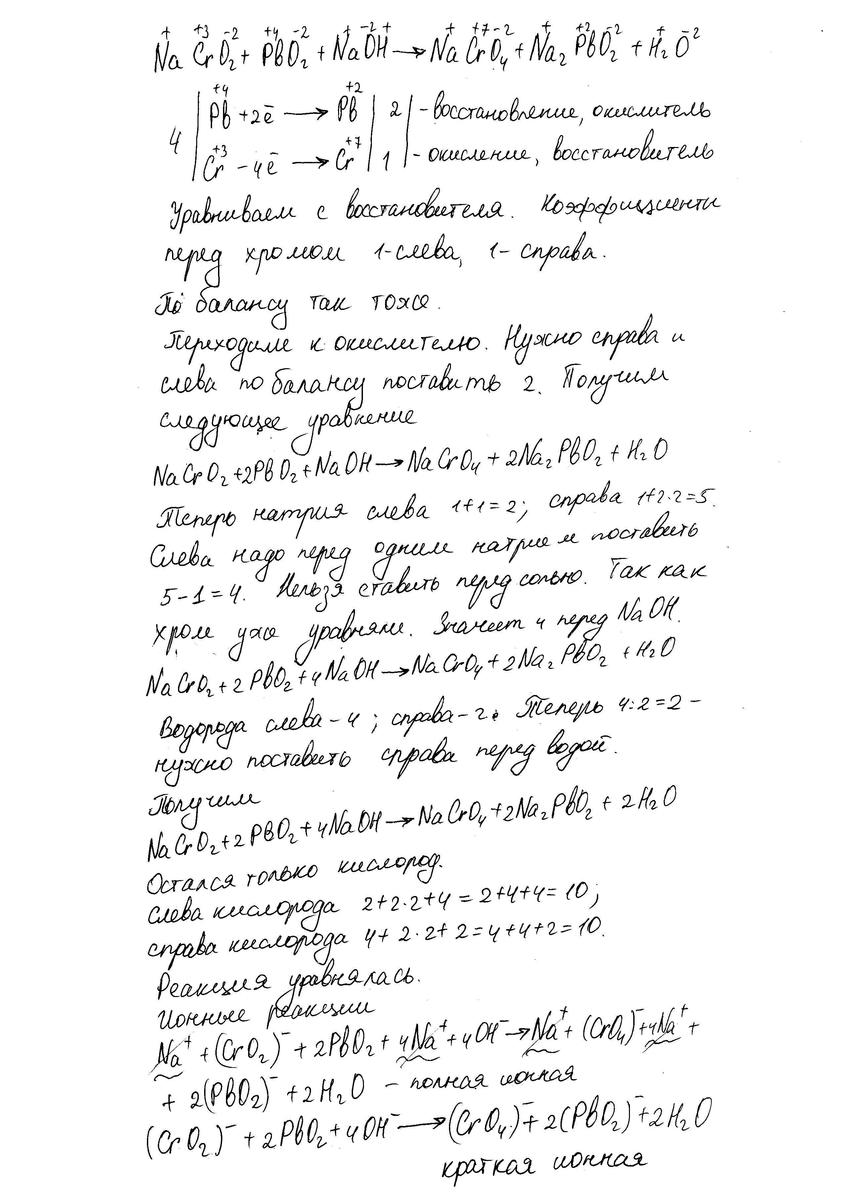 Na⁺Cr⁺³O₂⁻² + Pb⁺⁴O₂⁻² + Na⁺O⁻²H⁺ → Na⁺Cr⁺⁷O₄⁻² + Na₂⁺Pb⁺²O₂⁻² + H₂⁺O⁻²
4 | Pb⁺⁴ + 2ē → Pb⁺² | 2 | - восстановление, окислитель
Cr⁺³ - 4ē → Cr⁺⁷ | 1 | - окисление, восстановитель
Уравниваем с восстановителя. Коэффициенты
перед хромом 1-слева, 1-справа.
По балансу так тоже.
Переходим к окислителю. Нужно справа и
слева по балансу поставить 2. Получим
следующее уравнение
NaCrO₂ + 2PbO₂ + NaOH → NaCrO₄ + 2Na₂PbO₂ + H₂O
Теперь натрия слева 1+1=2; справа 1+2·2=5.
Слева надо перед одним натрием поставить
5-1=4. Нельзя ставить перед солью. Так как
хром уже уравняли. Значит 4 перед NaOH.
NaCrO₂ + 2PbO₂ + 4NaOH → NaCrO₄ + 2Na₂PbO₂ + H₂O
Водорода слева - 4; справа - 2. Теперь 4:2=2 -
нужно поставить справа перед водой.
Получим
NaCrO₂ + 2PbO₂ + 4NaOH → NaCrO₄ + 2Na₂PbO₂ + 2H₂O
Остался только кислород.
Слева кислорода 2+2·2+4=2+4+4=10;
справа кислорода 4+2·2+2=4+4+2=10.
Реакция уравнялась.
Ионные реакции
Na⁺ + (CrO₂)⁻ + 2PbO₂ + 4Na⁺ + 4OH⁻ → Na⁺ + (CrO₄)⁻ + 4Na⁺ +
+ 2(PbO₂)⁻ + 2H₂O - полная ионная
(CrO₂)⁻ + 2PbO₂ + 4OH⁻ → (CrO₄)⁻ + 2(PbO₂)⁻ + 2H₂O
краткая ионная